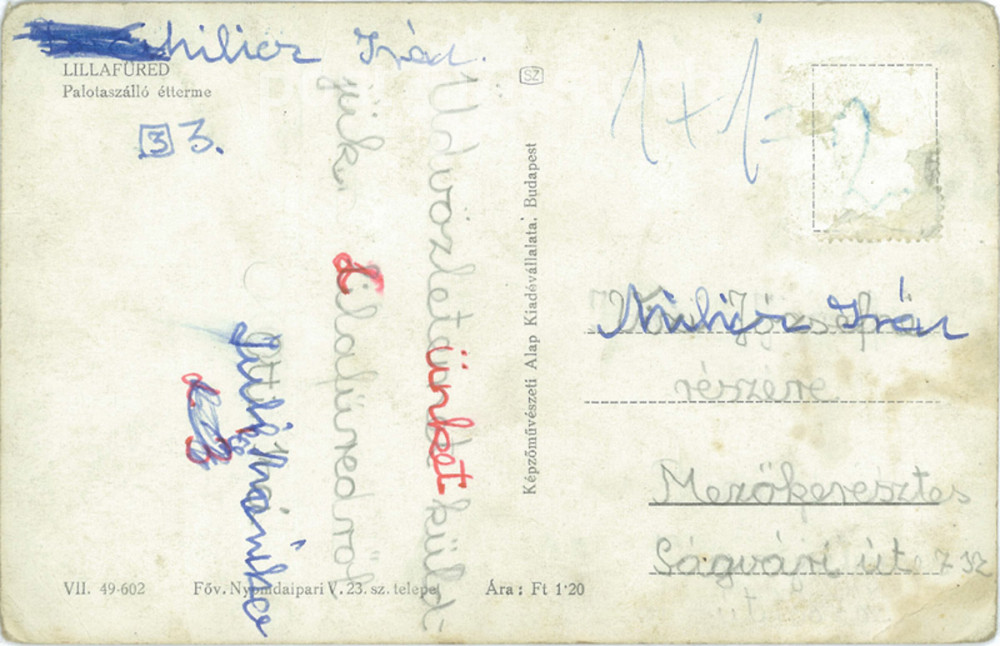 Milicz Irén.
LILLAFÜRED
Palotaszálló étterme
3 3.
Üdvözletünket küld-
jük
Lilafüredről
SZ
Képzőművészeti Alap Kiadóvállalata, Budapest
1+1=2
Milicz Irén
részére
Mezőkeresztes
Ságvári út 732
VII. 49-602
Főv. Nyomdaipari V. 23. sz. telepe
Ára: Ft 1'20